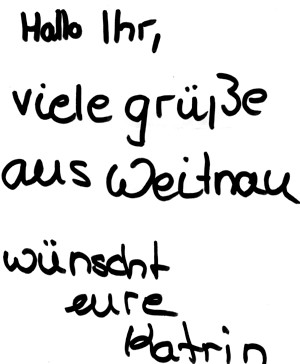 Hallo Ihr,
viele grüße
aus Weitnau
wünscht
eure
Katrin